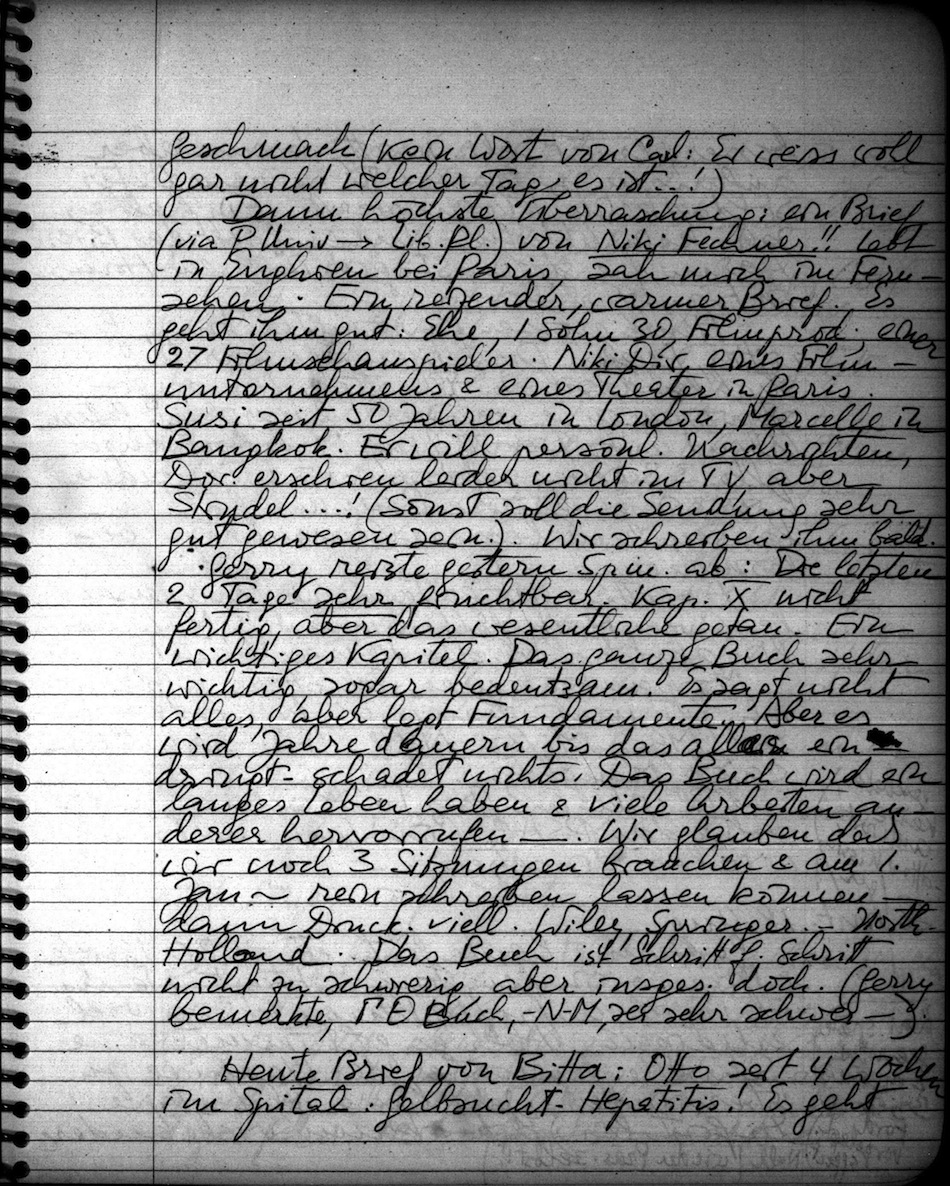 Geschmack (Kein Wort von Carl: Er weiss woll
gar nicht welcher Tag es ist...!)
Dann höchste Überraschung: ein Brief
(via P. Univ → Lib. Pl.) von Niki Fechner!! Lebt
in Enghien bei Paris, sah mich im Fern-
sehen. Ein reizender, warmer Brief. Es
geht ihm gut: Ehe, 1 Sohn 30, Filmprod, einer
27 Filmschauspieler. Niki Dir. eines Film-
unternehmens & eines Theater in Paris.
Susi seit 50 Jahren in London, Marcelle in
Bangkok. Er will persönl. Nachrichten,
Dor. erschien leider nicht im TV aber
Strudel...! (Sonst soll die Sendung sehr
gut gewesen sein.). Wir schreiben ihm bald.
Gerry reiste gestern 5pm. ab: Die letzten
2 Tage sehr fruchtbar. Kap. X nicht
fertig, aber das wesentliche getan. Ein
wichtiges Kapitel. Das ganze Buch sehr
wichtig, sogar bedeutsam. Es sagt nicht
alles, aber legt Fundamente. Aber es
wird Jahre dauern bis das alles ein
dringt - schadet nichts. Das Buch wird ein
langes Leben haben & viele Arbeiten an-
derer hervorrufen —. Wir glauben dass
wir noch 3 Sitzungen brauchen & am 1.
Jan ~ rein schreiben lassen können —
dann Druck. viell. Wiley, Springer. - North-
Holland. Das Buch ist Schritt f. Schritt
nicht zu schwierig aber insges. doch. (Gerry
bemerkte, TGEB Buch, -N-M, sei sehr schwer —).
Heute Brief von Bitta: Otto seit 4 Wochen
im Spital. Gelbsucht - Hepatitis! Es geht